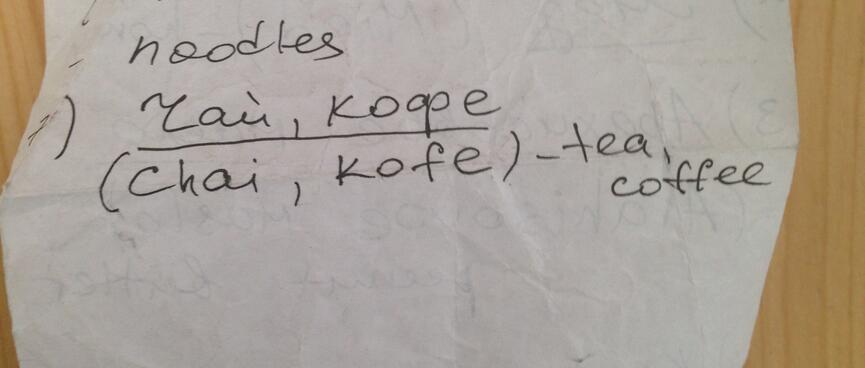 noodles
7) Чай, кофе
(Chai, kofe) - tea,
coffee